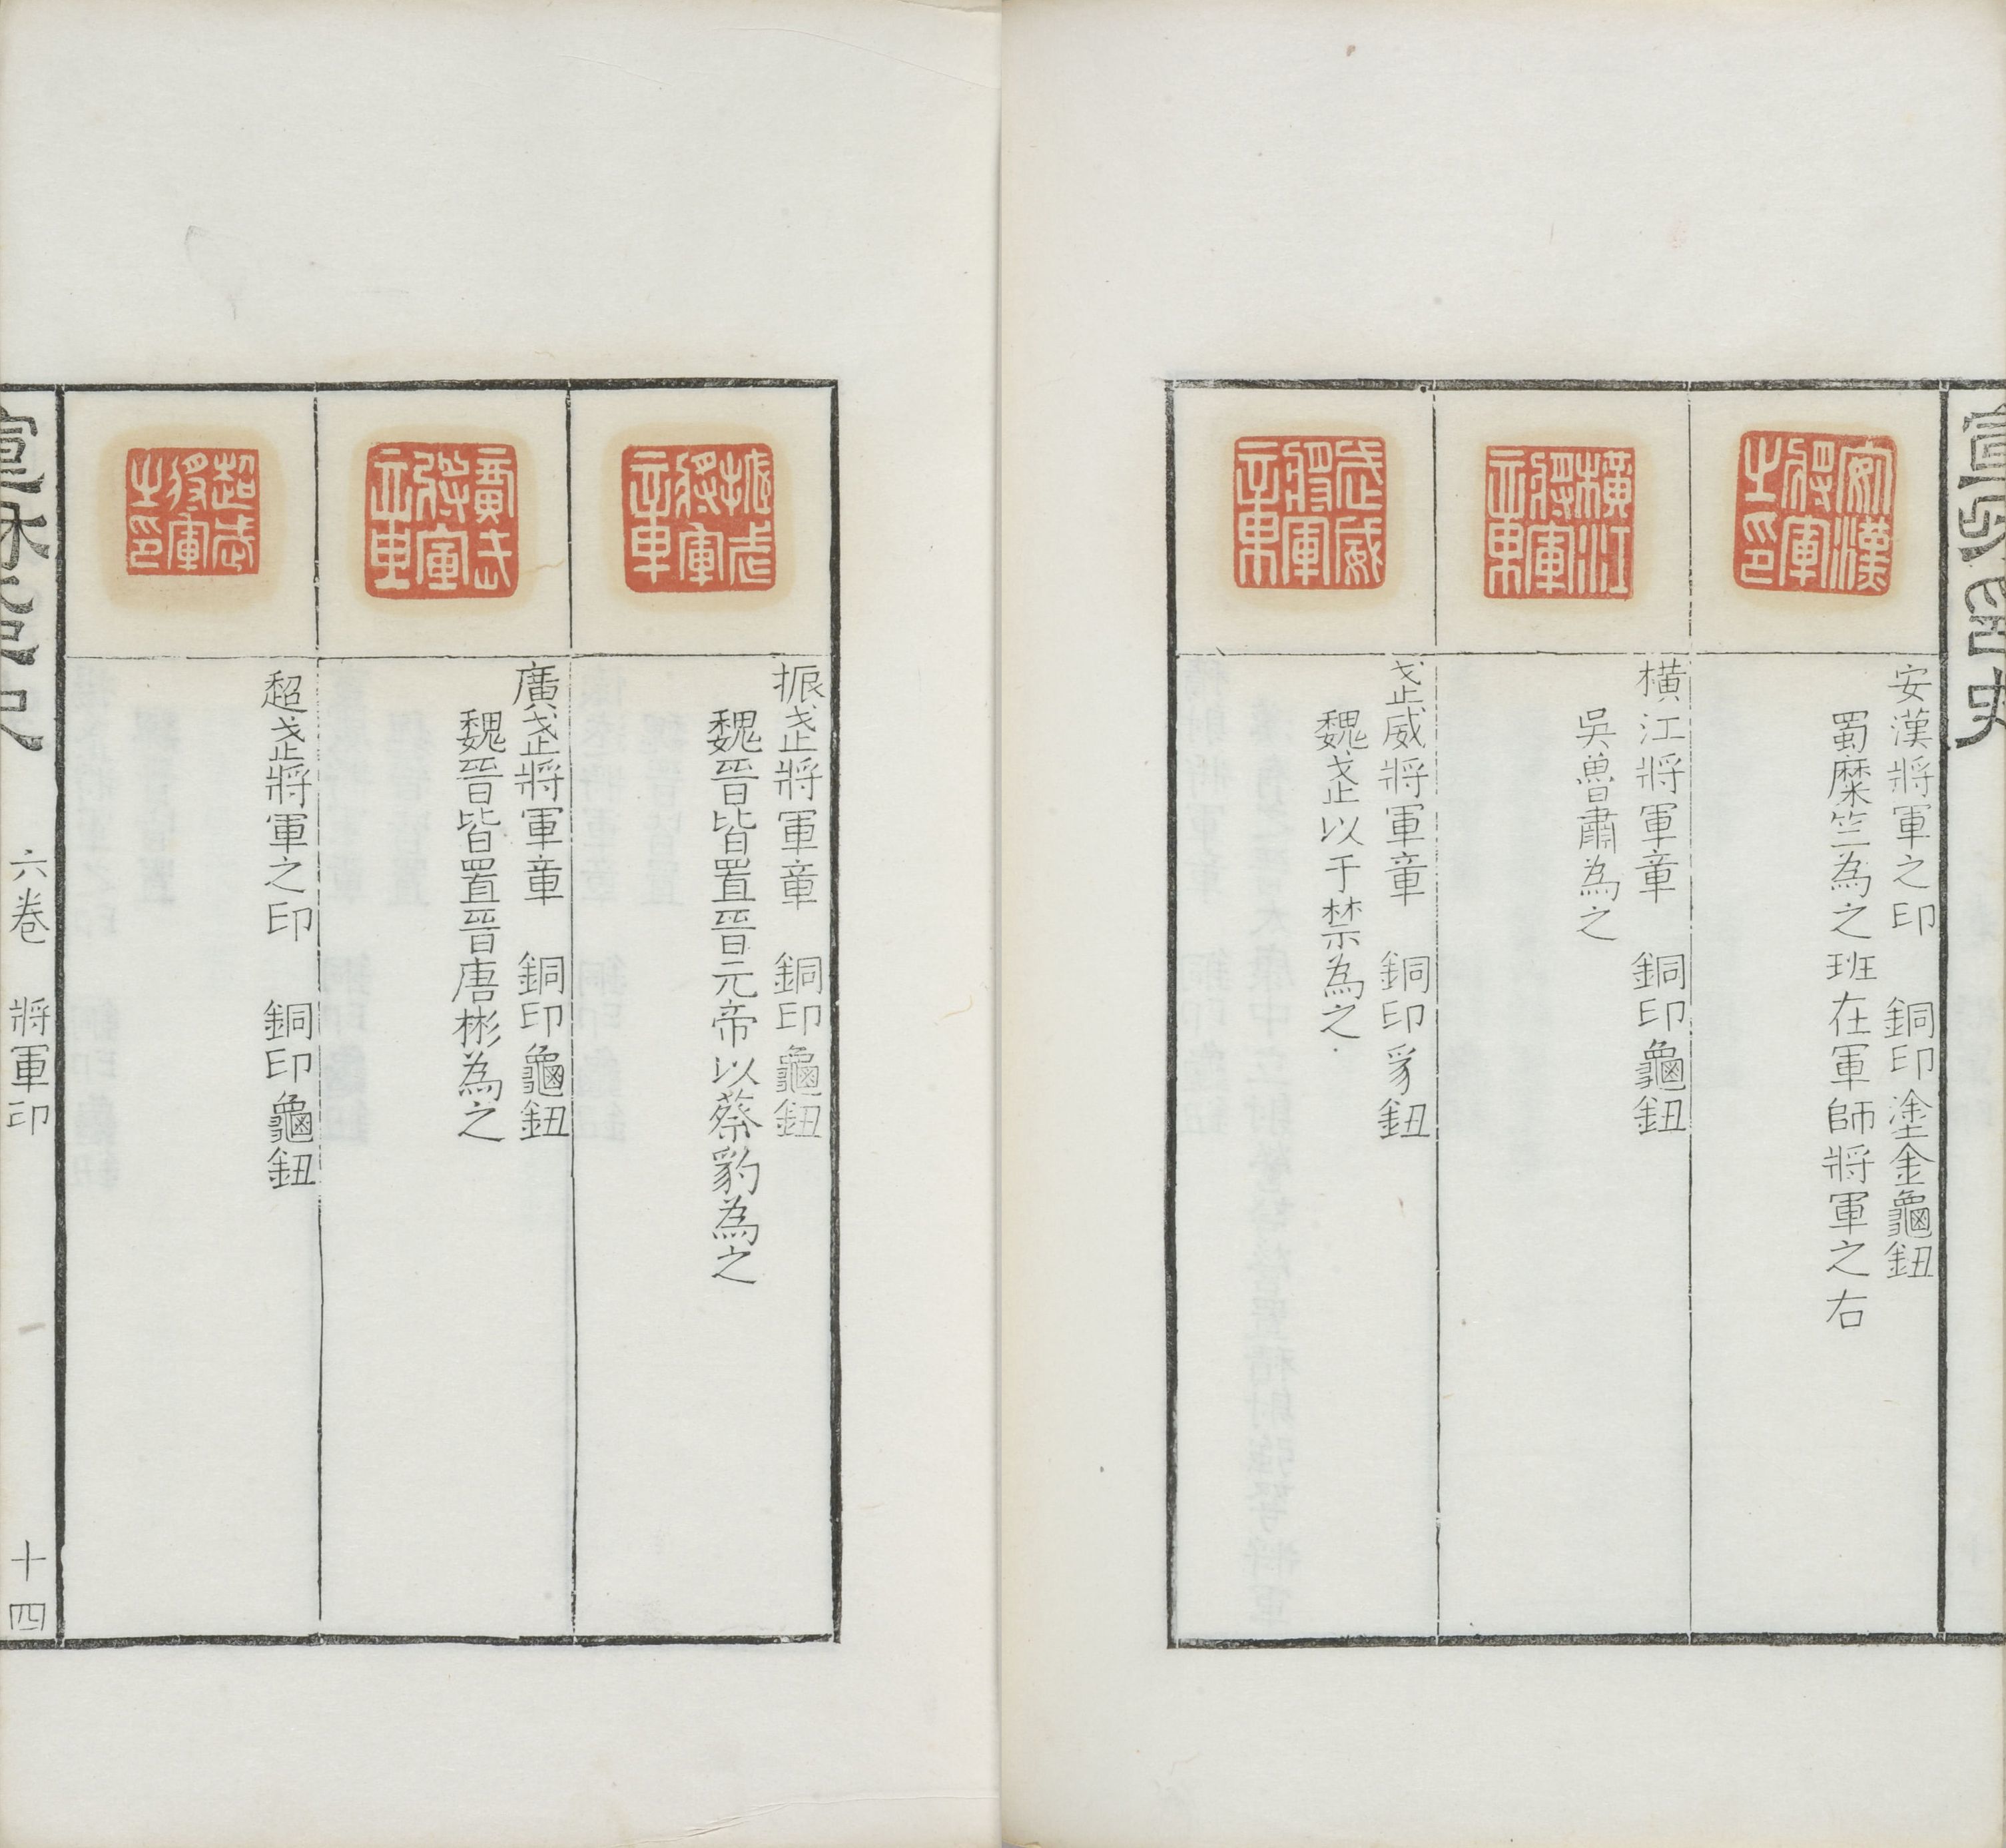 宣和印史
安漢將軍之印
安漢將軍之印　銅印塗金龜鈕
蜀糜竺為之班在軍師將軍之右
橫江將軍章
橫江將軍章　銅印龜鈕
吳魯肅為之
武威將軍章
武威將軍章　銅印豸鈕
魏武以于禁為之
振武將軍章
振武將軍章　銅印龜鈕
魏晉皆置晉元帝以蔡豹為之
廣武將軍章
廣武將軍章　銅印龜鈕
魏晉皆置晉唐彬為之
超武將軍之印
超武將軍之印　銅印龜鈕
宣和印史　六卷　將軍印　十四